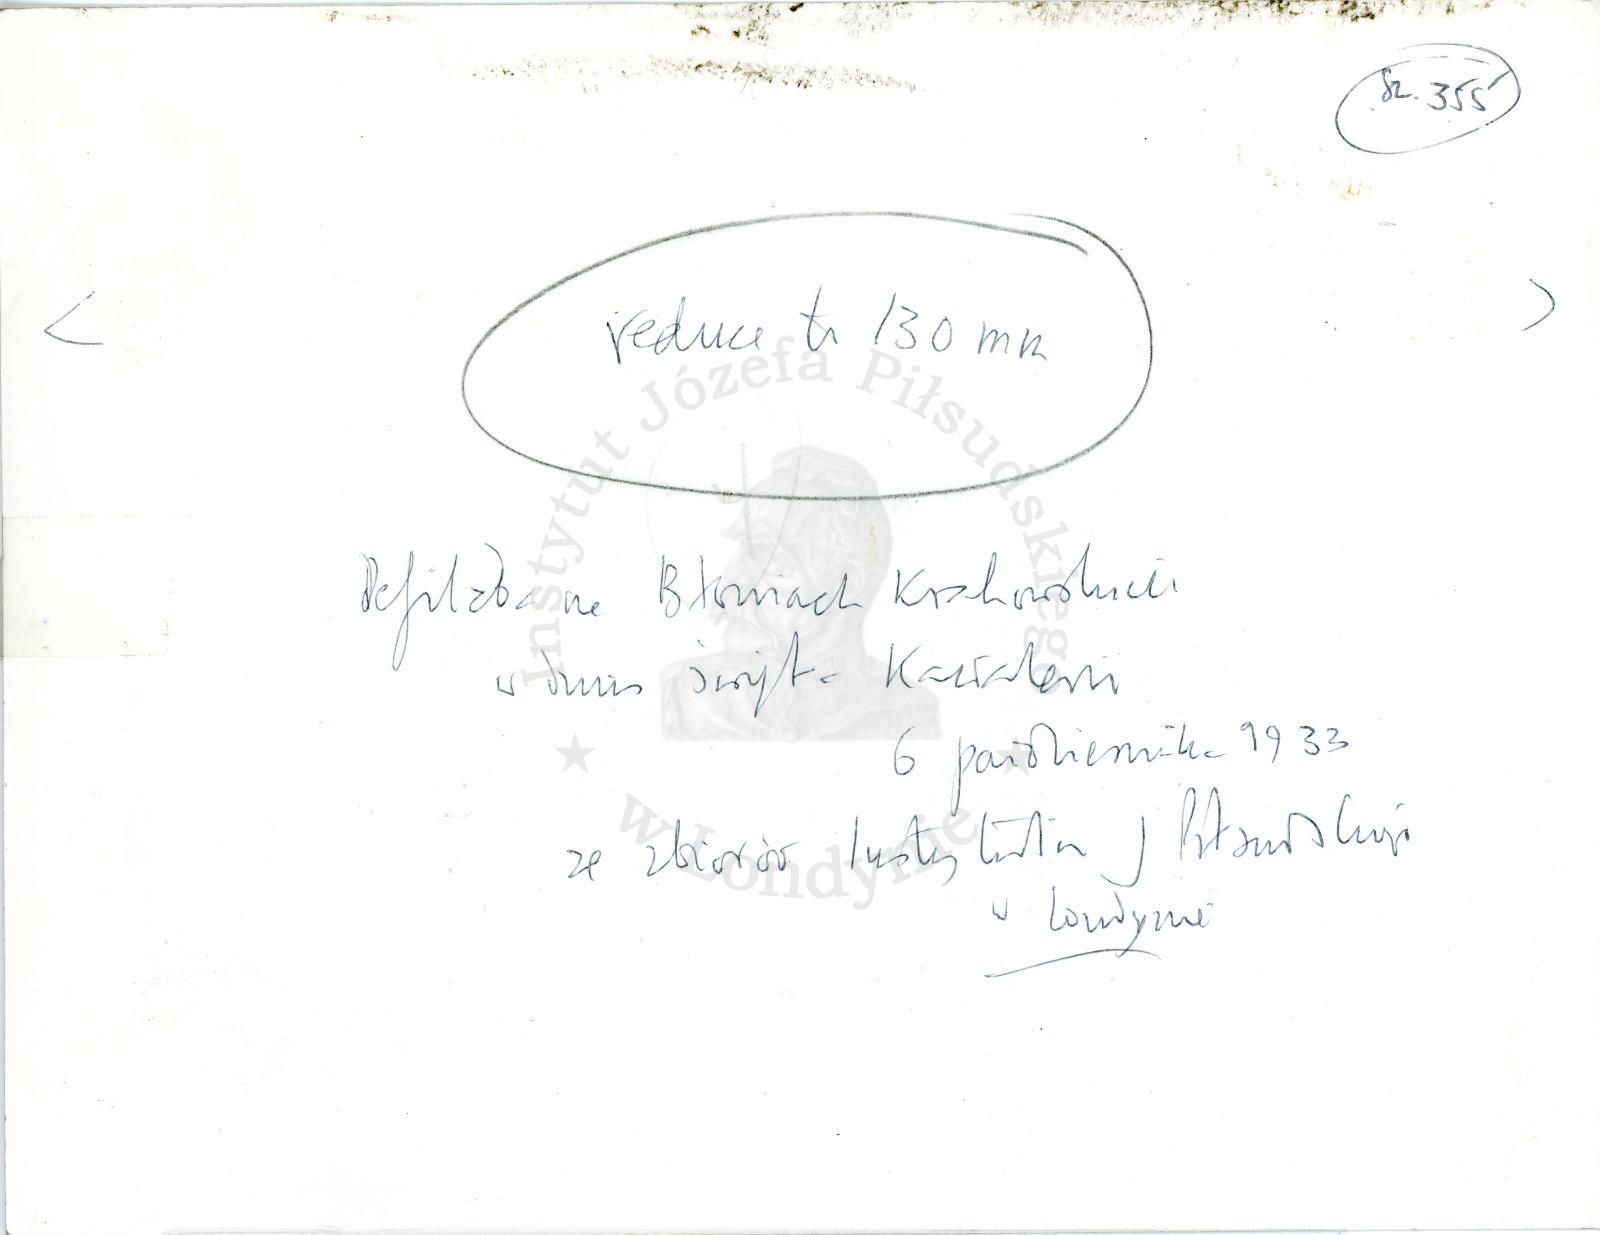 Sz. 355
reduce to 130 mm
Defilada na Błoniach Krakowskich
w dniu święta Kawalerii
6 października 1933
ze zbiorów Instytutu J Piłsudskiego
w Londynie
Instytut Józefa Piłsudskiego
w Londynie